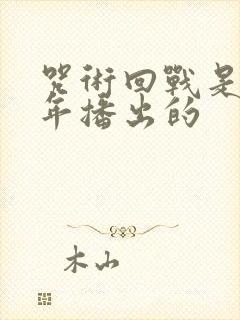 咒術回戰是
年播出的
木山